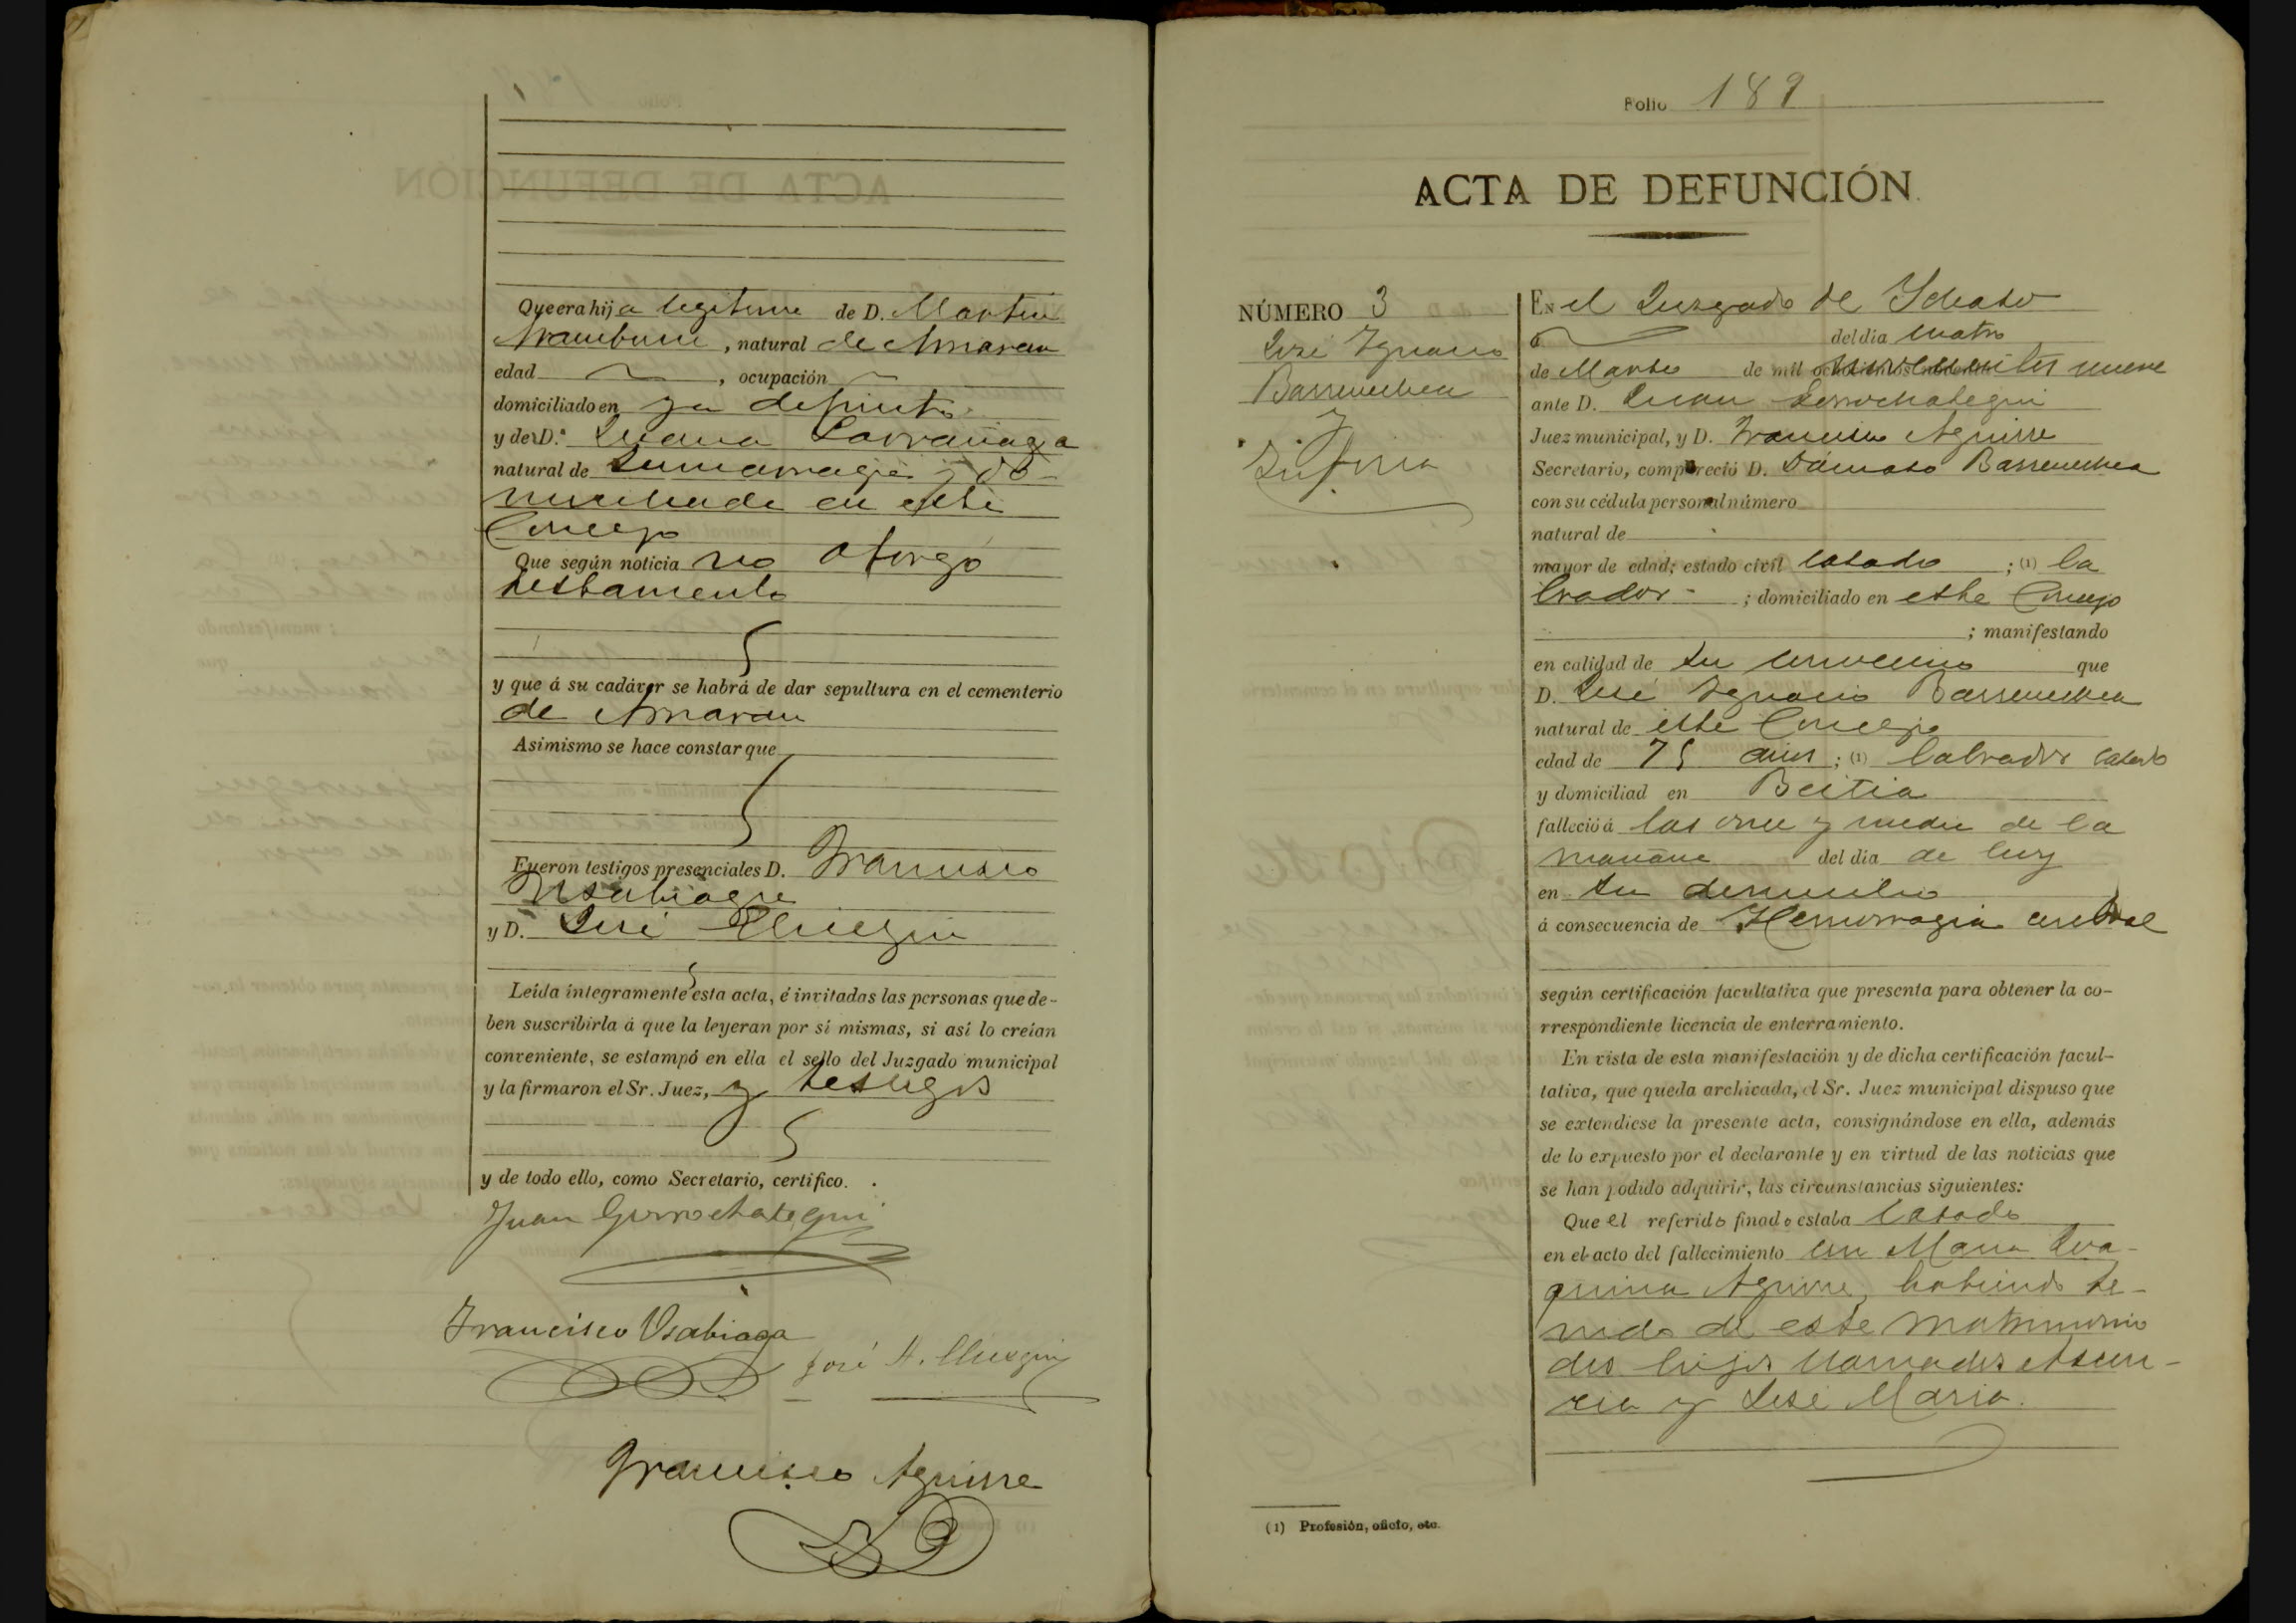 Que era hija legitima de D. Martin
Aramburu, natural de Amaran
edad , ocupación
domiciliado en ya difunto
y de D.ª Juana Larrañaga
natural de Zumarraga y do-
miciliada en este
Concejo
Que según noticia no otorgó
testamento
y que á su cadáver se habrá de dar sepultura en el cementerio
de Amaran
Asimismo se hace constar que
Fueron testigos presenciales D. Francisco
Usabiaga
y D. José
Leída íntegramente esta acta, é invitadas las personas que de-
ben suscribirla á que la leyeran por sí mismas, si así lo creían
conveniente, se estampó en ella el sello del Juzgado municipal
y la firmaron el Sr. Juez, y testigos
y de todo ello, como Secretario, certifico.
Juan Gurrochategui
Francisco Usabiaga
José A.
Francisco Aguirre
Folio 189
ACTA DE DEFUNCIÓN.
NÚMERO 3
José Ignacio
Barrenechea
y
EN el Juzgado de Ichaso
á del dia cuatro
de Marzo de mil ochocientos novecientos nueve
ante D. Juan Gurrochategui
Juez municipal, y D. Francisco Aguirre
Secretario, compareció D. Dámaso Barrenechea
con su cédula personal número
natural de
mayor de edad; estado civil casado ; (1) la
brador ; domiciliado en este Concejo
; manifestando
en calidad de su convecino que
D. José Ignacio Barrenechea
natural de este Concejo
edad de 75 años ; (1) labrador casado
y domiciliad en Beitia
falleció á las once y media de la
mañana del dia de hoy
en su domicilio
á consecuencia de Hemorragia cerebral
según certificación facultativa que presenta para obtener la co-
rrespondiente licencia de enterramiento.
En vista de esta manifestación y de dicha certificación facul-
tativa, que queda archivada, el Sr. Juez municipal dispuso que
se extendiese la presente acta, consignándose en ella, además
de lo expuesto por el declarante y en virtud de las noticias que
se han podido adquirir, las circunstancias siguientes:
Que el referido finado estaba casado
en el acto del fallecimiento con Maria Joa-
quina Aguirre, habiendo te-
nido de este matrimonio
dos hijos llamados Ascen-
cia y José Maria.
(1) Profesión, oficio, etc.